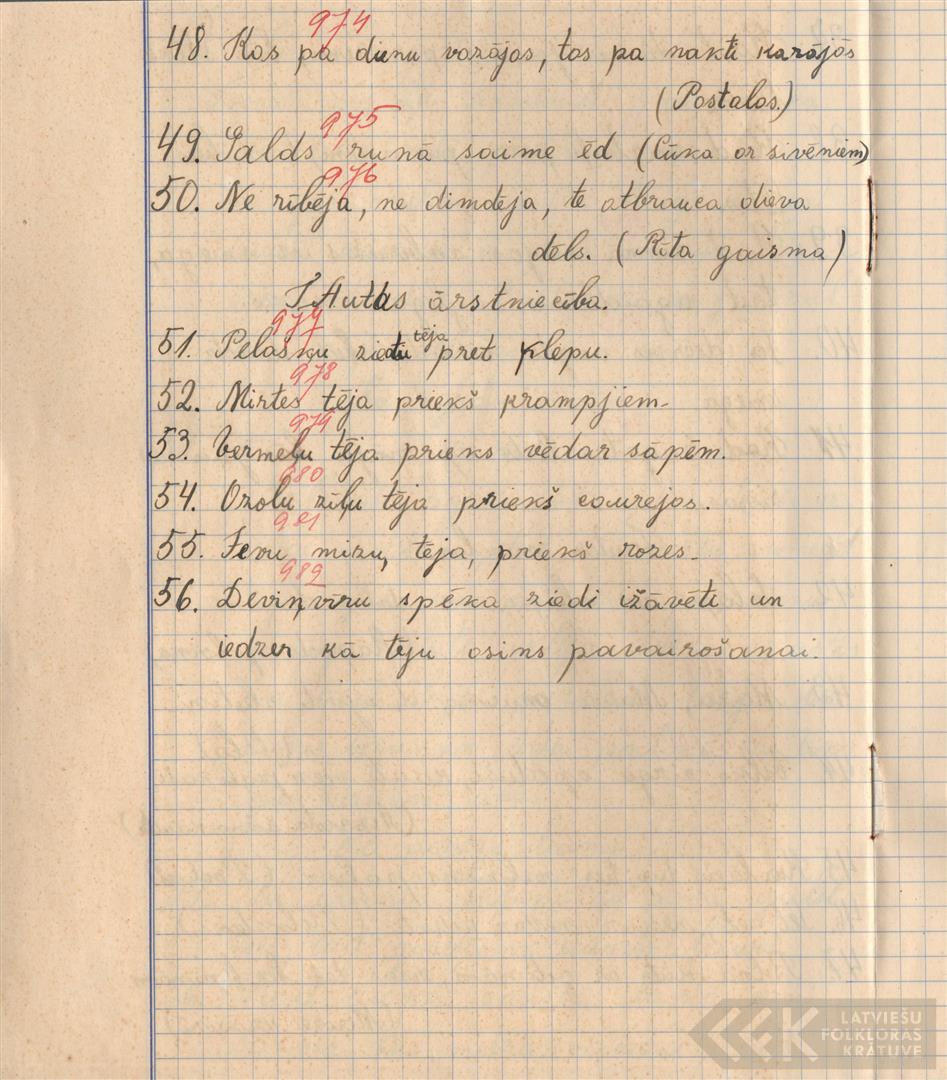 974
48. Kas pa dienu vazājas, tas pa nakti karājās
(Pastalas.)
975
49. Galds runā saime ēd (Cūka ar sivēniem)
976
50. Ne rībēja, ne dimdēja, te atbrauca dieva
dēls. (Rīta gaisma)
T. Autas ārstniecība.
977
51. Pelašķu ziedu tēja pret klepu.
978
52. Mirtes tēja priekš krampjiem.
979
53. Vermeļu tēja prieks vēdar sāpēm.
980
54. Ozolu zīļu tēja priekš caurejas.
981
55. Ievu mizu, tēja, priekš rozes.
982
56. Deviņvīru spēka ziedi ižāvēti un
iedzer kā tēju asins pavairošanai.
LATVIEŠU
FOLKLORAS
KRĀTUVE